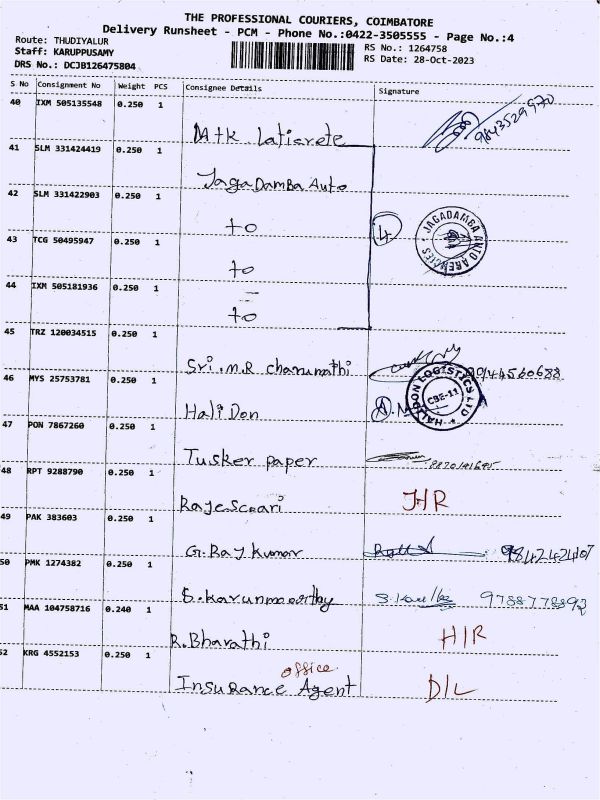 THE PROFESSIONAL COURIERS, COIMBATORE
Delivery Runsheet - PCM - Phone No.:0422-3505555 - Page No.:4
Route: THUDIYALUR
Staff: KARUPPUSAMY
DRS No.: DCJB126475804
RS No.: 1264758
RS Date: 28-Oct-2023
S No Consignment No Weight PCS Consignee Details Signature
40 IXM 505135548 0.250 1
MtK Laticrete 9843529970
41 SLM 331424419 0.250 1
JagaDamba Auto
42 SLM 331422903 0.250 1
to 4 JAGADAMBA AUTO AGENCIES
43 TCG 50495947 0.250 1
to
44 IXM 505181936 0.250 1
to
45 TRZ 120034515 0.250 1
Sri.M.R
46 MYS 25753781 0.250 1
HaliDon HALIDON LOGISTICS LTD CBE-11
47 PON 7867260 0.250 1
Tusker paper
48 RPT 9288790 0.250 1
HR
49 PAK 383603 0.250 1
G.Raj Kumar 9842424107
50 PMK 1274382 0.250 1
S.Karunmoorthy 9788778892
51 MAA 104758716 0.240 1
R.Bharathi H/R
52 KRG 4552153 0.250 1
office
Insurance Agent D/L